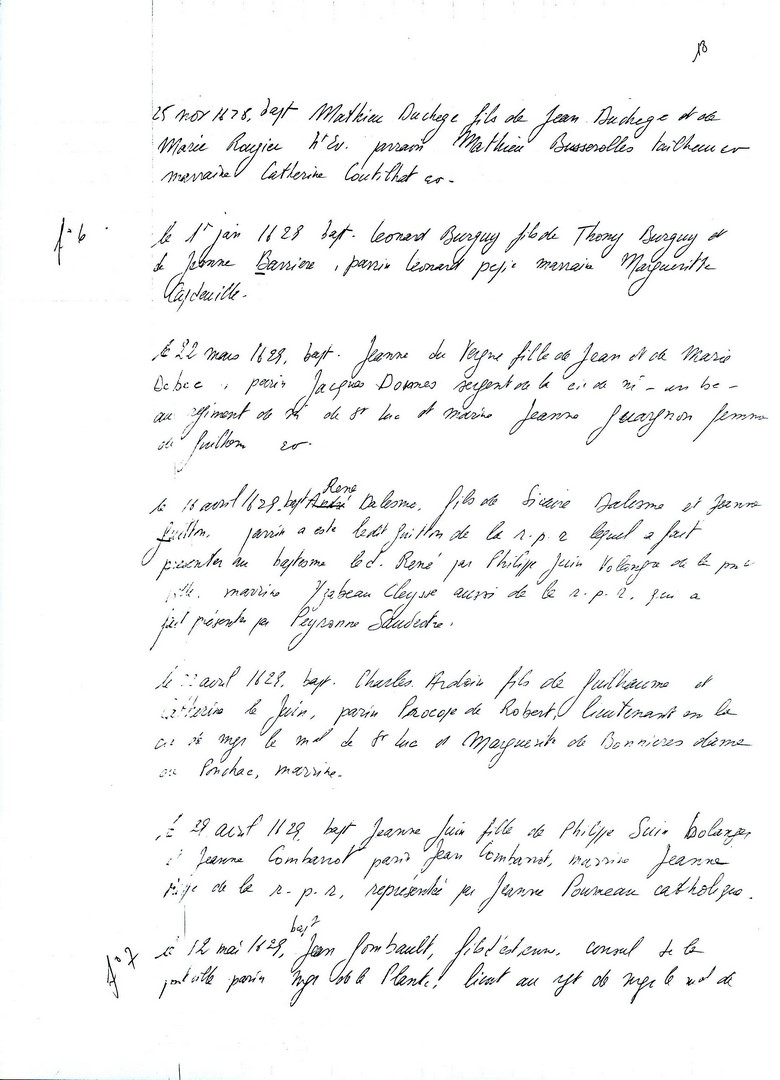 13
25 nov 1628, bapt Mathieu Duchege fils de Jean Duchege et de
Marie Rougier parrain Mathieu Busserolles
marraine Catherine Coutilhat
f° 6
le 1r jan 1628 bapt. Leonard Burguy fils de Thony Burguy et
de Jeanne Barriere, parrin Leonard marraine Margueritte
le 22 mars 1629, bapt. Jeanne du Vergne fille de Jean et de Marie
parin Jacques Dommes sergent de la
au regiment de de St Luc et marine Jeanne femme
de
le 16 avril 1629. bapt André René Dalesme, fils de Sicaire Dalesme et Jeanne
Guitton. parrin a este ledit Guitton de la r.p.r lequel a fait
presenter au baptesme led. René par Philippe Juin de la
ville. marrine Yzabeau Cleysse aussi de la r.p.r. qui a
fait présenter par Peyronne
le avril 1629. bapt. Charles Ardoin fils de Guilhaume et
Catherine le Juin, parin de Robert, lieutenant en la
cie de mgr le mal de St Luc et Marguerite de Bonnieres dame
de Ponchac, marrine.
le 29 avril 1629, bapt Jeanne Juin fille de Philippe Juin bolanger
et Jeanne Combarrot parin Jean Combarrot, marrine Jeanne
de la r.p.r, représentée par Jeanne catholique.
f° 7
le 12 mai 1629, bapt Jean Gombault, fils d'estienne, consul de la
ville parin mgr de la Plante, lieut au rgt de mgr le mal de